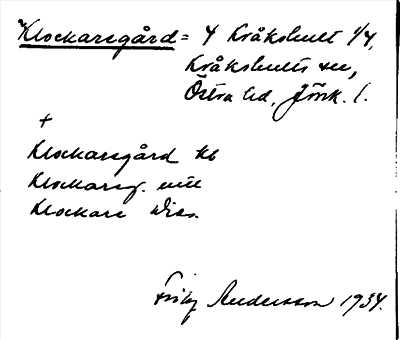 Klockaregård = 4 Kråkshult 1/4,
Kråkshults sn,
Östra hd, Jönk. l.
+
Klockaregård kb
Klockareg.
Klockare diss.
Fritz Andersson 1934.